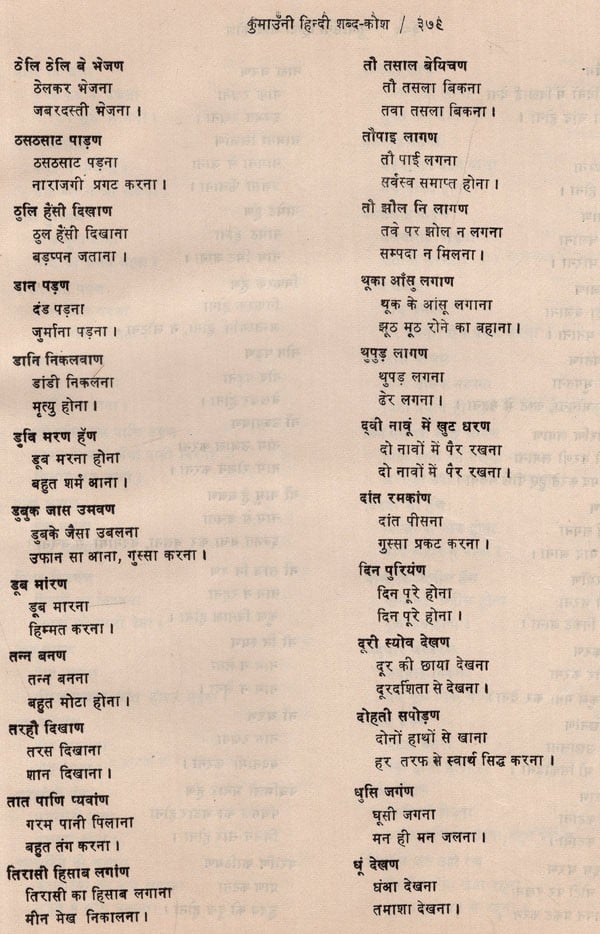 कुमाउँनी हिन्दी शब्द-कोश / ३७९
ठेलि ठेलि बे भेजण
ठेलकर भेजना
जबरदस्ती भेजना ।
ठसठसाट पाड़ण
ठसठसाट पड़ना
नाराजगी प्रगट करना ।
ठुलि हैंसी दिखाण
ठुल हैंसी दिखाना
बड़प्पन जताना ।
डान पड़ण
दंड पड़ना
जुर्माना पड़ना ।
डानि निकलवाण
डांडी निकलना
मृत्यु होना ।
डुबि मरण हॅण
डूब मरना होना
बहुत शर्म आना ।
डुबुक जास उमवण
डुबके जैसा उबलना
उफान सा आना, गुस्सा करना ।
डूब मांरण
डूब मारना
हिम्मत करना ।
तन्न बनण
तन्न बनना
बहुत मोटा होना ।
तरहौ दिखाण
तरस दिखाना
शान दिखाना ।
तात पाणि प्यवांण
गरम पानी पिलाना
बहुत तंग करना ।
तिरासी हिसाब लगांण
तिरासी का हिसाब लगाना
मीन मेख निकालना ।
तौ तसाल बेयिचण
तौ तसला बिकना
तवा तसला बिकना ।
तौपाइ लागण
तौ पाई लगना
सर्वस्व समाप्त होना ।
तौ झौल नि लागण
तवे पर झोल न लगना
सम्पदा न मिलना ।
थूका आँसु लगाण
थूक के आंसू लगाना
झूठ मूठ रोने का बहाना ।
थुपुड़ लागण
थुपड़ लगना
ढेर लगना ।
द्वी नावूं में खुट धरण
दो नावों में पैर रखना
दो नावों में पैर रखना ।
दांत रमकांण
दांत पीसना
गुस्सा प्रकट करना ।
दिन पुरियंण
दिन पूरे होना
दिन पूरे होना ।
दूरी स्योव देखण
दूर की छाया देखना
दूरदर्शिता से देखना ।
दोहती सपोड़ण
दोनों हाथों से खाना
हर तरफ से स्वार्थ सिद्ध करना ।
धुसि जगंण
धूसी जगना
मन ही मन जलना ।
धूं देखण
धंआ देखना
तमाशा देखना ।